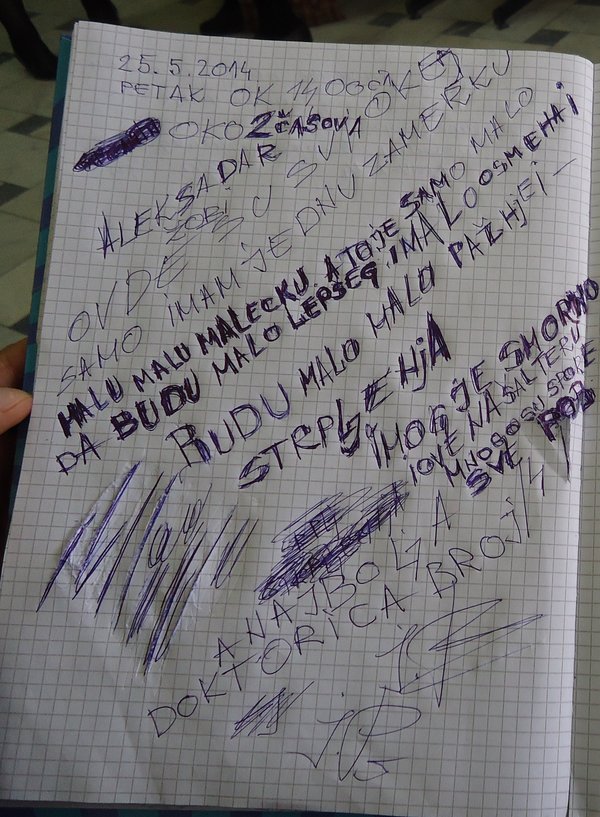 25.5.2014
PETAK OK 14 OOČI
OKO 2 ČASOVA
ALEKSADAR
OVDE SU SVI OKEJ
SAMO IMAM JEDNU ZAMERKU
MALU MALU MALECKU. A TO JE SAMO MALO
DA BUDU MALO LEPŠEG I MALO OSMEHA I
BUDU MALO MALO PAŽHJEI –
STRPLJEHJA
IMORJE SMORHO
IOVE NA ŠALTERU
MNOGO SU SPORE
SVE POZ.
A NAJBOLJA
DOKTORICA BROJ 14
J.P.